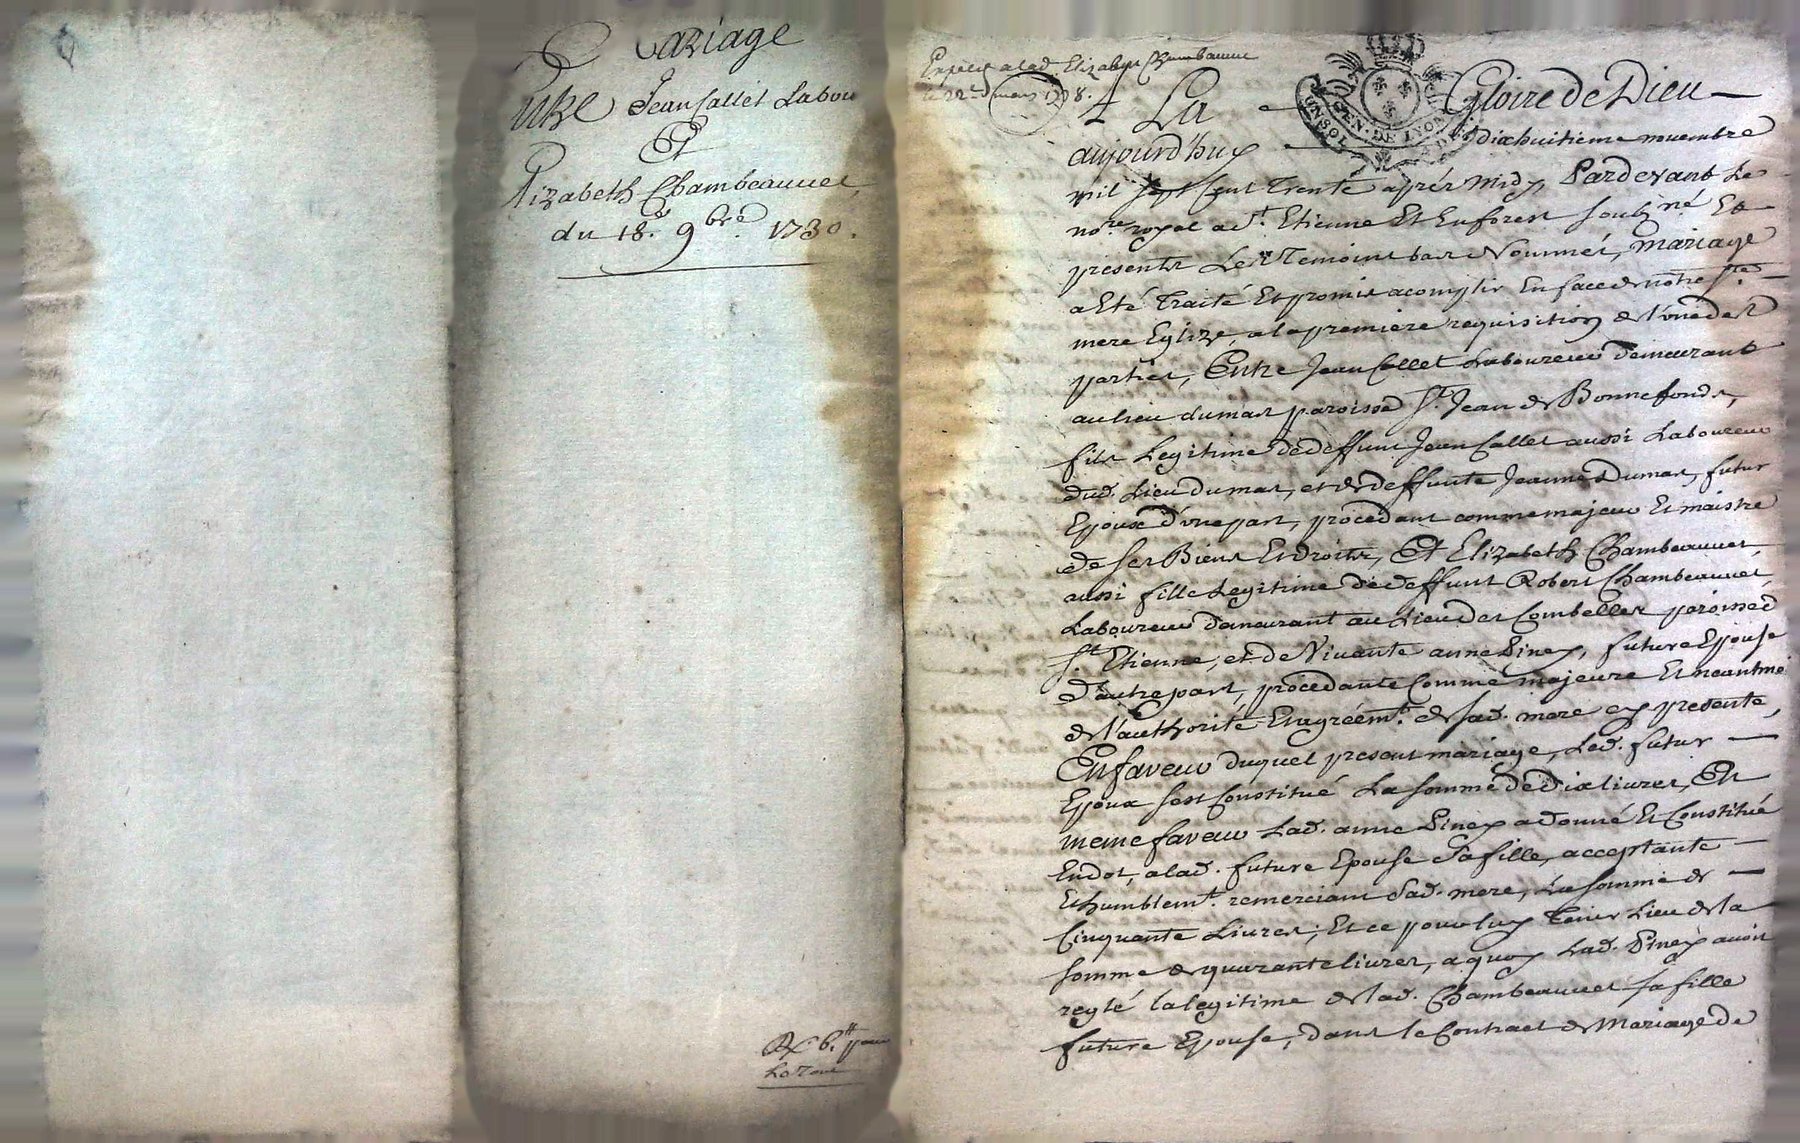 Mariage
Entre Jean Callet Labou
Et
Elizabeth Chambeauvet,
du 18e. 9bre. 1730.
6.tt pour
Expedié a lad. Elizabeth Chambauvet
le 22e. mars
GEN. DE LYON
UN SOL
A La Gloire de Dieu
aujourd'huy dixhuitieme nuembre
mil sept Cent Trente aprés midy, Pardevant Le
nore. royal a St. Etienne Et En forest soubzné Et
presents Les Temoins bas Nommés, mariage
a Eté Traité Et promis acomplir En face de notre Ste.
mere Eglize, a la premiere requisition de l'une des
parties, Entre Jean Callet Laboureur demeurant
au lieu dumas paroisse St. Jean de Bonnefonds,
fils Legitime de deffunt Jean Callet aussi Laboureur
dud. Lieu dumas, et de deffunte Jeanne Dumas, futur
Epoux d'une part, procedant comme majeur Et maistre
de ses Biens Et droits, Et Elizabeth Chambeauvet,
aussi fille Legitime de deffunt Robert Chambeauvet,
Laboureur demeurant au Lieu des Combelles paroisse
St. Etienne, et de Vivante anne Piney, future Epouse
d'autre part, procedante Comme majeure Et neantmo
de l'authorité Et agréemt. de sad. mere cy presente,
En faveur duquel present mariage, Led. futur
Epoux s'est Constitué La somme de dix livres, Et
meme faveur Lad. anne Piney a donné Et Constitué
En dot, a lad. future Epouse sa fille, acceptante
Et humblemt. remerciant sad. mere, La somme de
Cinquante Livres, Et ce pour luy Tenir Lieu de la
somme de quarante livres, a quoy Lad. Piney avoit
reglé la legitime de lad. Chambeauvet sa fille
future Epouse, dans le Contract de Mariage de